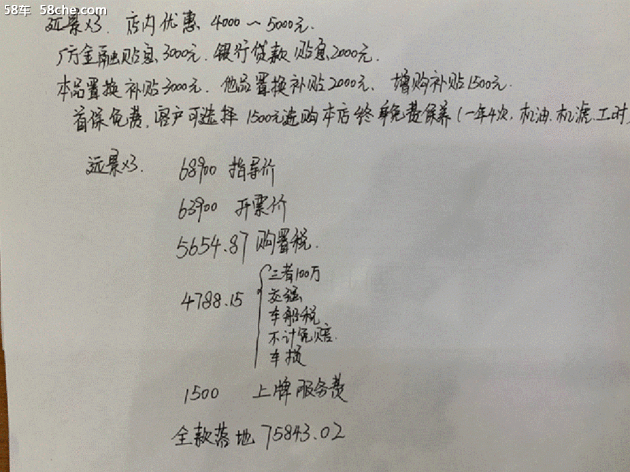 58车 58che.com
远景X3. 店内优惠 4000～5000元.
厂方金融贴息3000元. 银行贷款贴息2000元
本品置换补贴3000元. 他品置换补贴2000元. 增购补贴1500元.
首保免费. 客户可选择 1500元选购本店终身免费保养(一年4次, 机油. 机滤. 工时
远景X3.
68900 指导价
63900 开票价
5654.87 购置税.
4788.15
三者100万
交强
车船税
不计免赔
车损
1500 上牌服务费
全款落地 75843.02